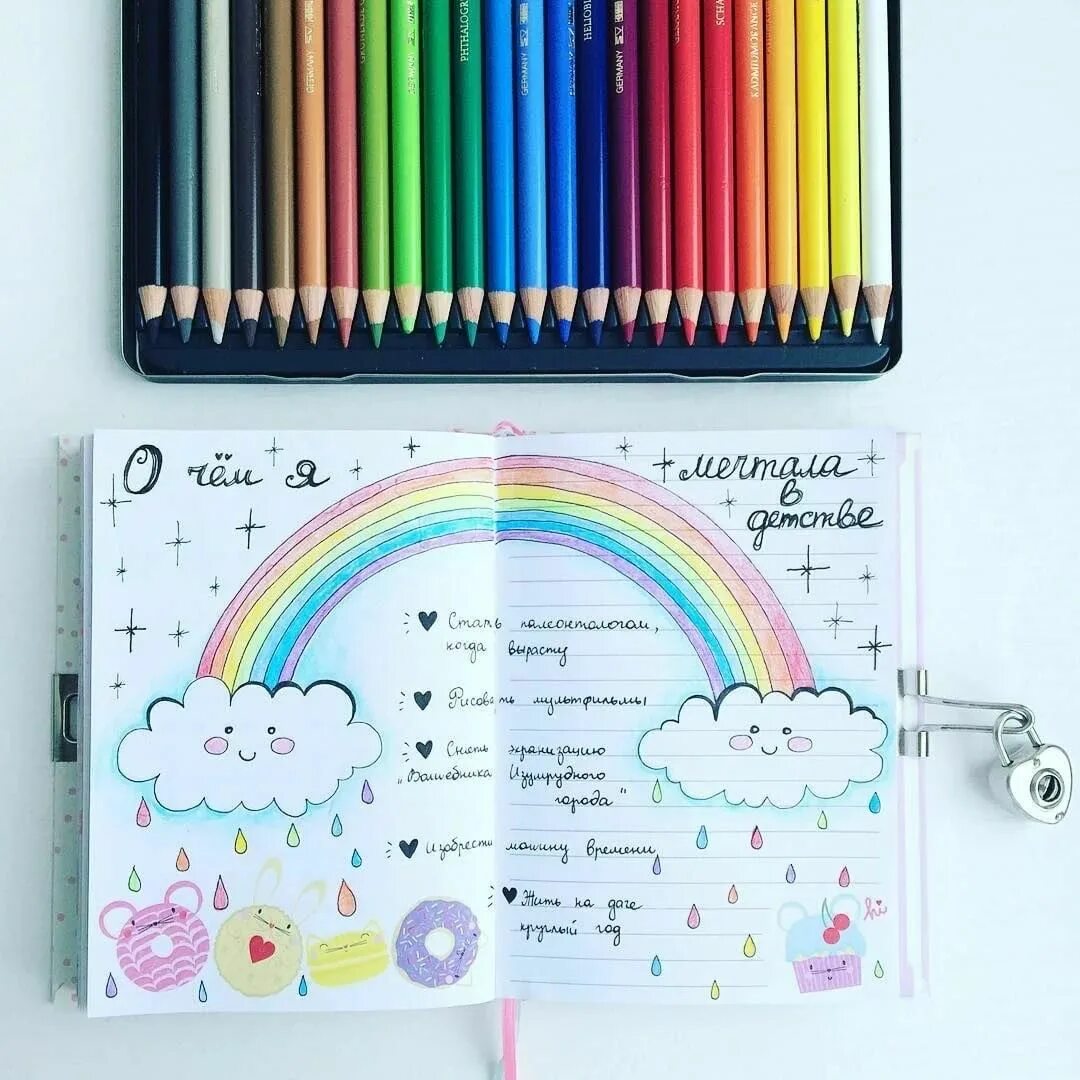 GERMANY
PHTHALOGR
GERMANY
GERMANY
HELIOBL
GERMANY
SCHA
KADMIUMORANGE
О чём я мечтала
в
детстве
Стать палеонтологом,
когда вырасту
Рисовать мультфильмы
Снять экранизацию
"Волшебника Изумрудного
города"
Изобрести машину времени
Жить на даче
круглый год
hi